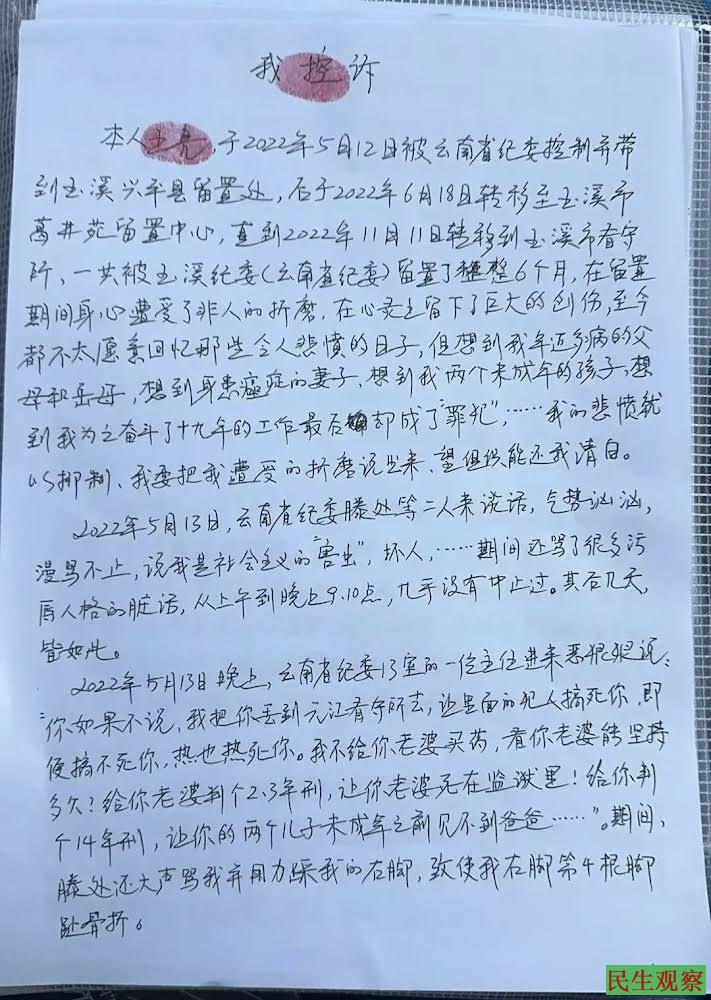 我控诉
本人王亮，于2022年5月12日被云南省纪委控制并带
到玉溪兴平县留置处，后于2022年6月18日转移至玉溪市
葛井苑留置中心，直到2022年11月11日转移到玉溪市看守
所，一共被玉溪纪委（云南省纪委）留置了整整6个月，在留置
期间身心遭受了非人的折磨，在心灵上留下了巨大的创伤，至今
都不太愿意回忆那些令人悲愤的日子，但想到我年迈多病的父
母和岳母，想到身患癌症的妻子，想到我两个未成年的孩子，想
到我为之奋斗了十九年的工作最后却成了"罪犯"，……我的悲愤就
抑制、我要把我遭受的折磨说出来、望组织能还我清白。
2022年5月13日，云南省纪委滕处等二人来谈话，气势汹汹，
漫骂不止，说我是社会主义的"害虫"，坏人，……期间还骂了很多污
辱人格的脏话，从上午到晚上9.10点，几乎没有中止过。其后几天，
皆如此。
2022年5月13日晚上，云南省纪委13室的一位主任进来恶狠狠说：
"你如果不说，我把你丢到元江看守所去，让里面的犯人搞死你，即
便搞不死你，热也热死你。我不给你老婆买药，看你老婆能坚持
多久？给你老婆判个2.3年刑，让你老婆死在监狱里！给你判
个14年刑，让你的两个儿子未成年之前见不到爸爸……"。期间，
滕处还大声骂我并用力踩我的右脚，致使我右脚第4根脚
趾骨折。
民生观察